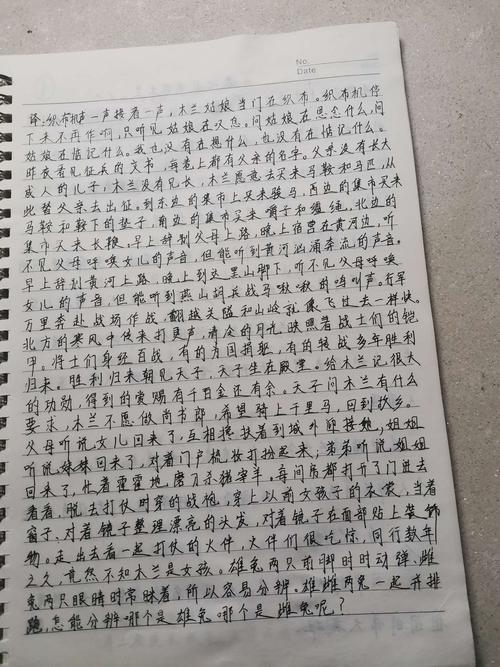 No.
Date
译:织布机声一声接着一声,木兰姑娘当门在织布。织布机停
下来不再作响,只听见姑娘在叹息。问姑娘在思念什么,问
姑娘在惦记什么。我也没有在想什么,也没有在惦记什么。
昨夜看见征兵的文书,每卷上都有父亲的名字。父亲没有长大
成人的儿子,木兰没有兄长,木兰愿意去买来马鞍和马匹,从
此替父亲去出征。到东边的集市上买来骏马,西边的集市买来
马鞍和鞍下的垫子,南边的集市买来嚼子和缰绳,北边的
集市买来长鞭。早上辞别父母上路,晚上宿营在黄河边,听
不见父母呼唤女儿的声音,但能听到黄河汹涌奔流的声音。
早上辞别黄河上路,晚上到达黑山脚下,听不见父母呼唤
女儿的声音,但能听到燕山胡兵战马啾啾的鸣叫声。行军
万里奔赴战场作战,翻越关隘和山岭就像飞过去一样快。
北方的寒风中传来打更声,清冷的月光映照着战士们的铠
甲。将士们身经百战,有的为国捐躯,有的转战多年胜利
归来。胜利归来朝见天子,天子坐在殿堂。给木兰记很大
的功勋,得到的赏赐有千百金还有余。天子问木兰有什么
要求,木兰不愿做尚书郎,希望骑上千里马,回到故乡。
父母听说女儿回来了,互相搀扶着到城外迎接她;姐姐
听说妹妹回来了,对着门户梳妆打扮起来;弟弟听说姐姐
回来了,忙着霍霍地磨刀杀猪宰羊。每间房都打开了门进去
看看,脱去打仗时穿的战袍,穿上以前女孩子的衣裳,当着
窗子、对着镜子整理漂亮的头发,对着镜子在面部贴上装饰
物。走出去看一起打仗的火伴,火伴们很吃惊,同行数年
之久,竟然不知木兰是女孩。雄兔两只前脚时时动弹、雌
兔两只眼睛时常眯着,所以容易分辨。雄雌两兔一起并排
跑,怎能分辨哪个是雄兔哪个是雌兔呢?